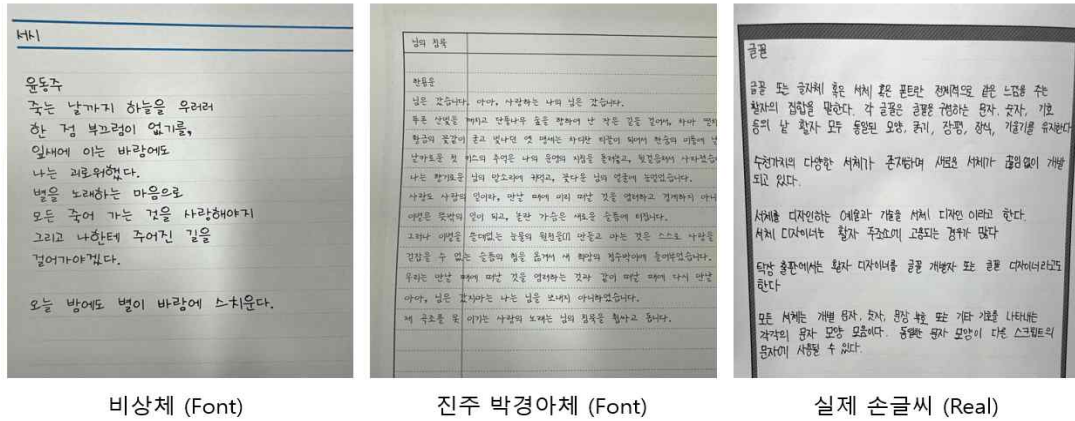 서시
윤동주
죽는 날까지 하늘을 우러러
한 점 부끄럼이 없기를,
잎새에 이는 바람에도
나는 괴로워했다.
별을 노래하는 마음으로
모든 죽어 가는 것을 사랑해야지
그리고 나한테 주어진 길을
걸어가야겠다.
오늘 밤에도 별이 바람에 스치운다.
비상체 (Font)
님의 침묵
한용운
님은 갔습니다. 아아, 사랑하는 나의 님은 갔습니다.
푸른 산빛을 깨치고 단풍나무 숲을 향하여 난 작은 길을 걸어서, 차마
황금의 꽃같이 굳고 빛나던 옛 맹세는 차디찬 티끌이 되어서 한숨의 미풍에
날카로운 첫 키스의 추억은 나의 운명의 지침을 돌려놓고, 뒷걸음쳐서
나는 향기로운 님의 말소리에 귀먹고, 꽃다운 님의 얼굴에 눈멀었습니다.
사랑도 사람의 일이라, 만날 때에 미리 떠날 것을 염려하고 경계하지
이별은 뜻밖의 일이 되고, 놀란 가슴은 새로운 슬픔에 터집니다.
그러나 이별을 쓸데없는 눈물의 만들고 마는 것은 스스로 사랑을
걷잡을 수 없는 슬픔의 힘을 옮겨서 새 희망의 정수박이에 들어부었습니다.
우리는 만날 때에 떠날 것을 염려하는 것과 같이 떠날 때에 다시 만날
아아, 님은 갔지마는 나는 님을 보내지 아니하였습니다.
제 곡조를 못 이기는 사랑의 노래는 님의 침묵을 휩싸고 돕니다.
진주 박경아체 (Font)
글꼴
글꼴 또는 글자체 혹은 서체 혹은 폰트란 전체적으로 같은 느낌을 주는
활자의 집합을 말한다. 각 글꼴은 글꼴을 구성하는 문자, 숫자, 기호
등의 낱 활자 모두 동일된 모양, 굵기, 장평, 장식, 기울기를 유지한다
수천가지의 다양한 서체가 존재하며 새로운 서체가 끊임없이 개발
되고 있다.
서체를 디자인하는 예술과 기술을 서체 디자인 이라고 한다.
서체 디자이너는 활자 주조소에 고용되는 경우가 많다
탁상 출판에서는 활자 디자이너를 글꼴 개발자 또는 글꼴 디자이너라고도
한다
모든 서체는 개별 문자, 숫자, 문장 부호 또는 기타 기호를 나타내는
각각의 문자 모양 모음이다. 동일한 문자 모양이 다른 스크립트의
문자에 사용될 수 있다.
실제 손글씨 (Real)